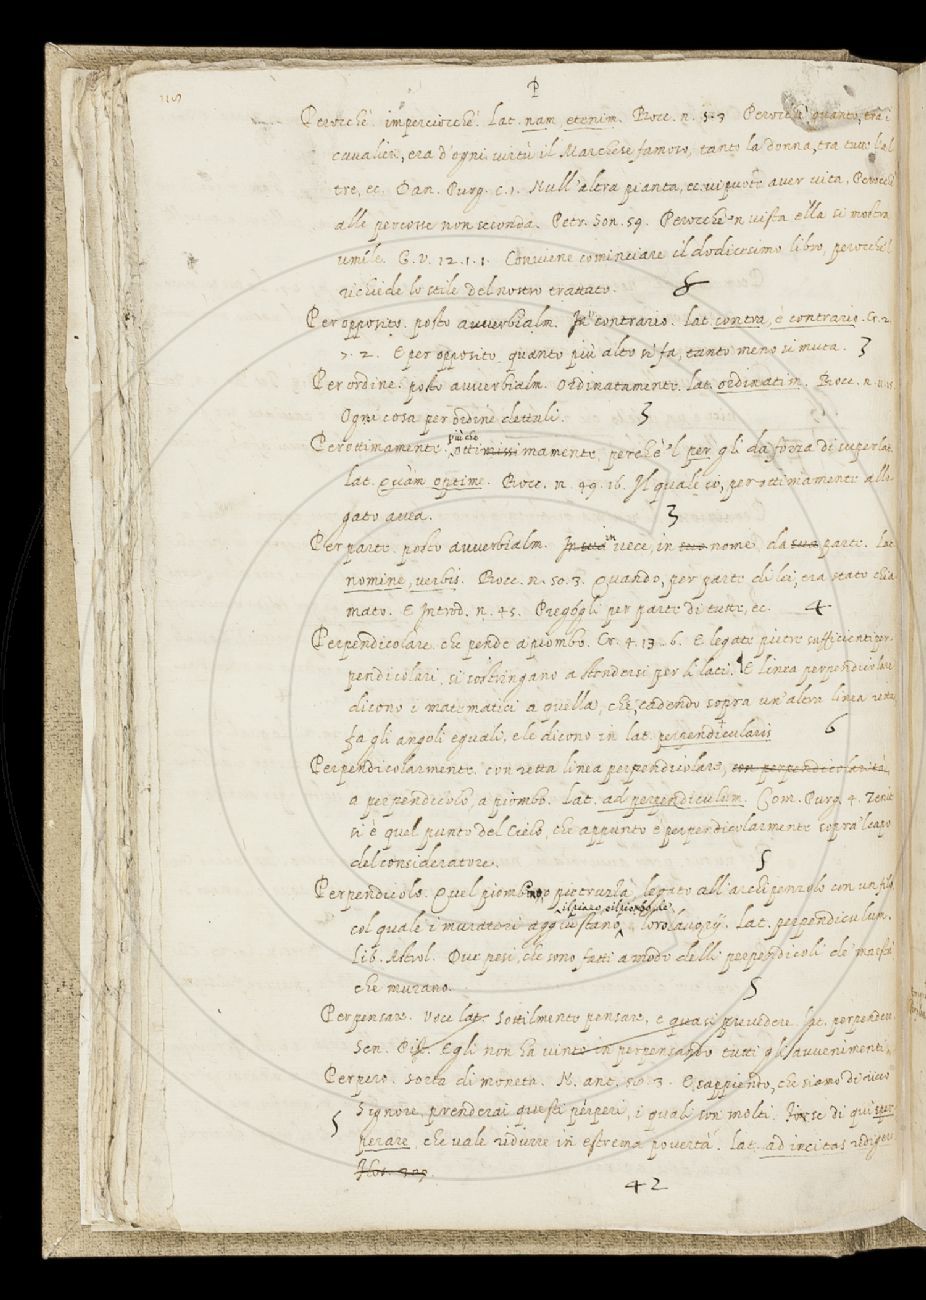 P
Perocchè. imperciocchè. Lat. nam, etenim. Bocc. n. 5. 3 Perocchè quanto, tra i
cavalier, era d'ogni virtù il Marchese famoso, tanto la donna, tra tutte l'al
tre, ec. Dan. Purg. c. 1. Null'altra pianta, ec. vi puote aver vita, Perocch'
alle percosse non seconda. Petr. Son. 59. Perocche'n vista ella si mostra
umile. G. V. 12. 1. 1. Conviene cominciare il dodicesimo libro, perocche'l
richiede lo stile del nostro trattato. 6
Per opposito. posto avverbialm. In contrario. lat. contra, è contrario. Cr. 2.
7. 2. E per opposito, quanto più alto si fa, tanto meno si muta. 3
Per ordine. posto avverbialm. Ordinatamente. lat. ordinatim. Bocc. n.
Ogni cosa per ordine dettali. 3
Perottimamente. più che ottimamente, perchè 'l per gli da forza di superlat.
lat. Quàm optime. Bocc. n. 49. 16. Il quale sì, perottimamente alle
gato avea. 3
Per parte. posto avverbialm. In vece, in nome, da parte. Lat.
nomine, verbis. Bocc. n. 50. 3. Quando, per parte di lei, era stato chia
mato. E Introd. n. 45. Pregogli per parte di tutte, ec. 4
Perpendicolare. che pende a piombo. Cr. 4. 13. 6. E legate pietre sufficienti per
pendicolari, si costringano a stendersi per li laci. E linea perpendicolare
dicono i matematici a quella, che, cadendo sopra un'altra linea retta
fa gli angoli eguali, e le dicono in lat. perpendicularis 6
Perpendicolarmente. con retta linea perpendicolare, con perpendicolarità,
a perpendicolo, a piombo. Lat. ad perpendiculum. Com. Purg. 4. Zenit
si è quel punto del Cielo, che appunto è perpendicolarmente sopra 'l capo
del consideratore. 5
Perpendicolo. Quel piombino, o pietruzza legato all'archipenzolo con un filo
col quale i muratori aggiustano il piano, o il piombo de' loro lavorij. Lat. perpendiculum.
Lib. Astrol. Due pesi, che sono fatti a modo delli perpendicoli de' maestri
che murano. 5
Perpensare. Voce lat. Sottilmente pensare, e quasi prevedere. lat. perpendere
Sen. Pist. Egli non ha vinto in perpensando tutti gli avvenimenti.
Perpero. Sorta di moneta. N. ant. 56. 3. E sappiendo, che siamo di ricco
5 Signore, prenderai questi pèrperi, i quali son molti. Forse di qui sper
perare, che vale ridurre in estrema povertà. Lat. ad incitas redigere
42